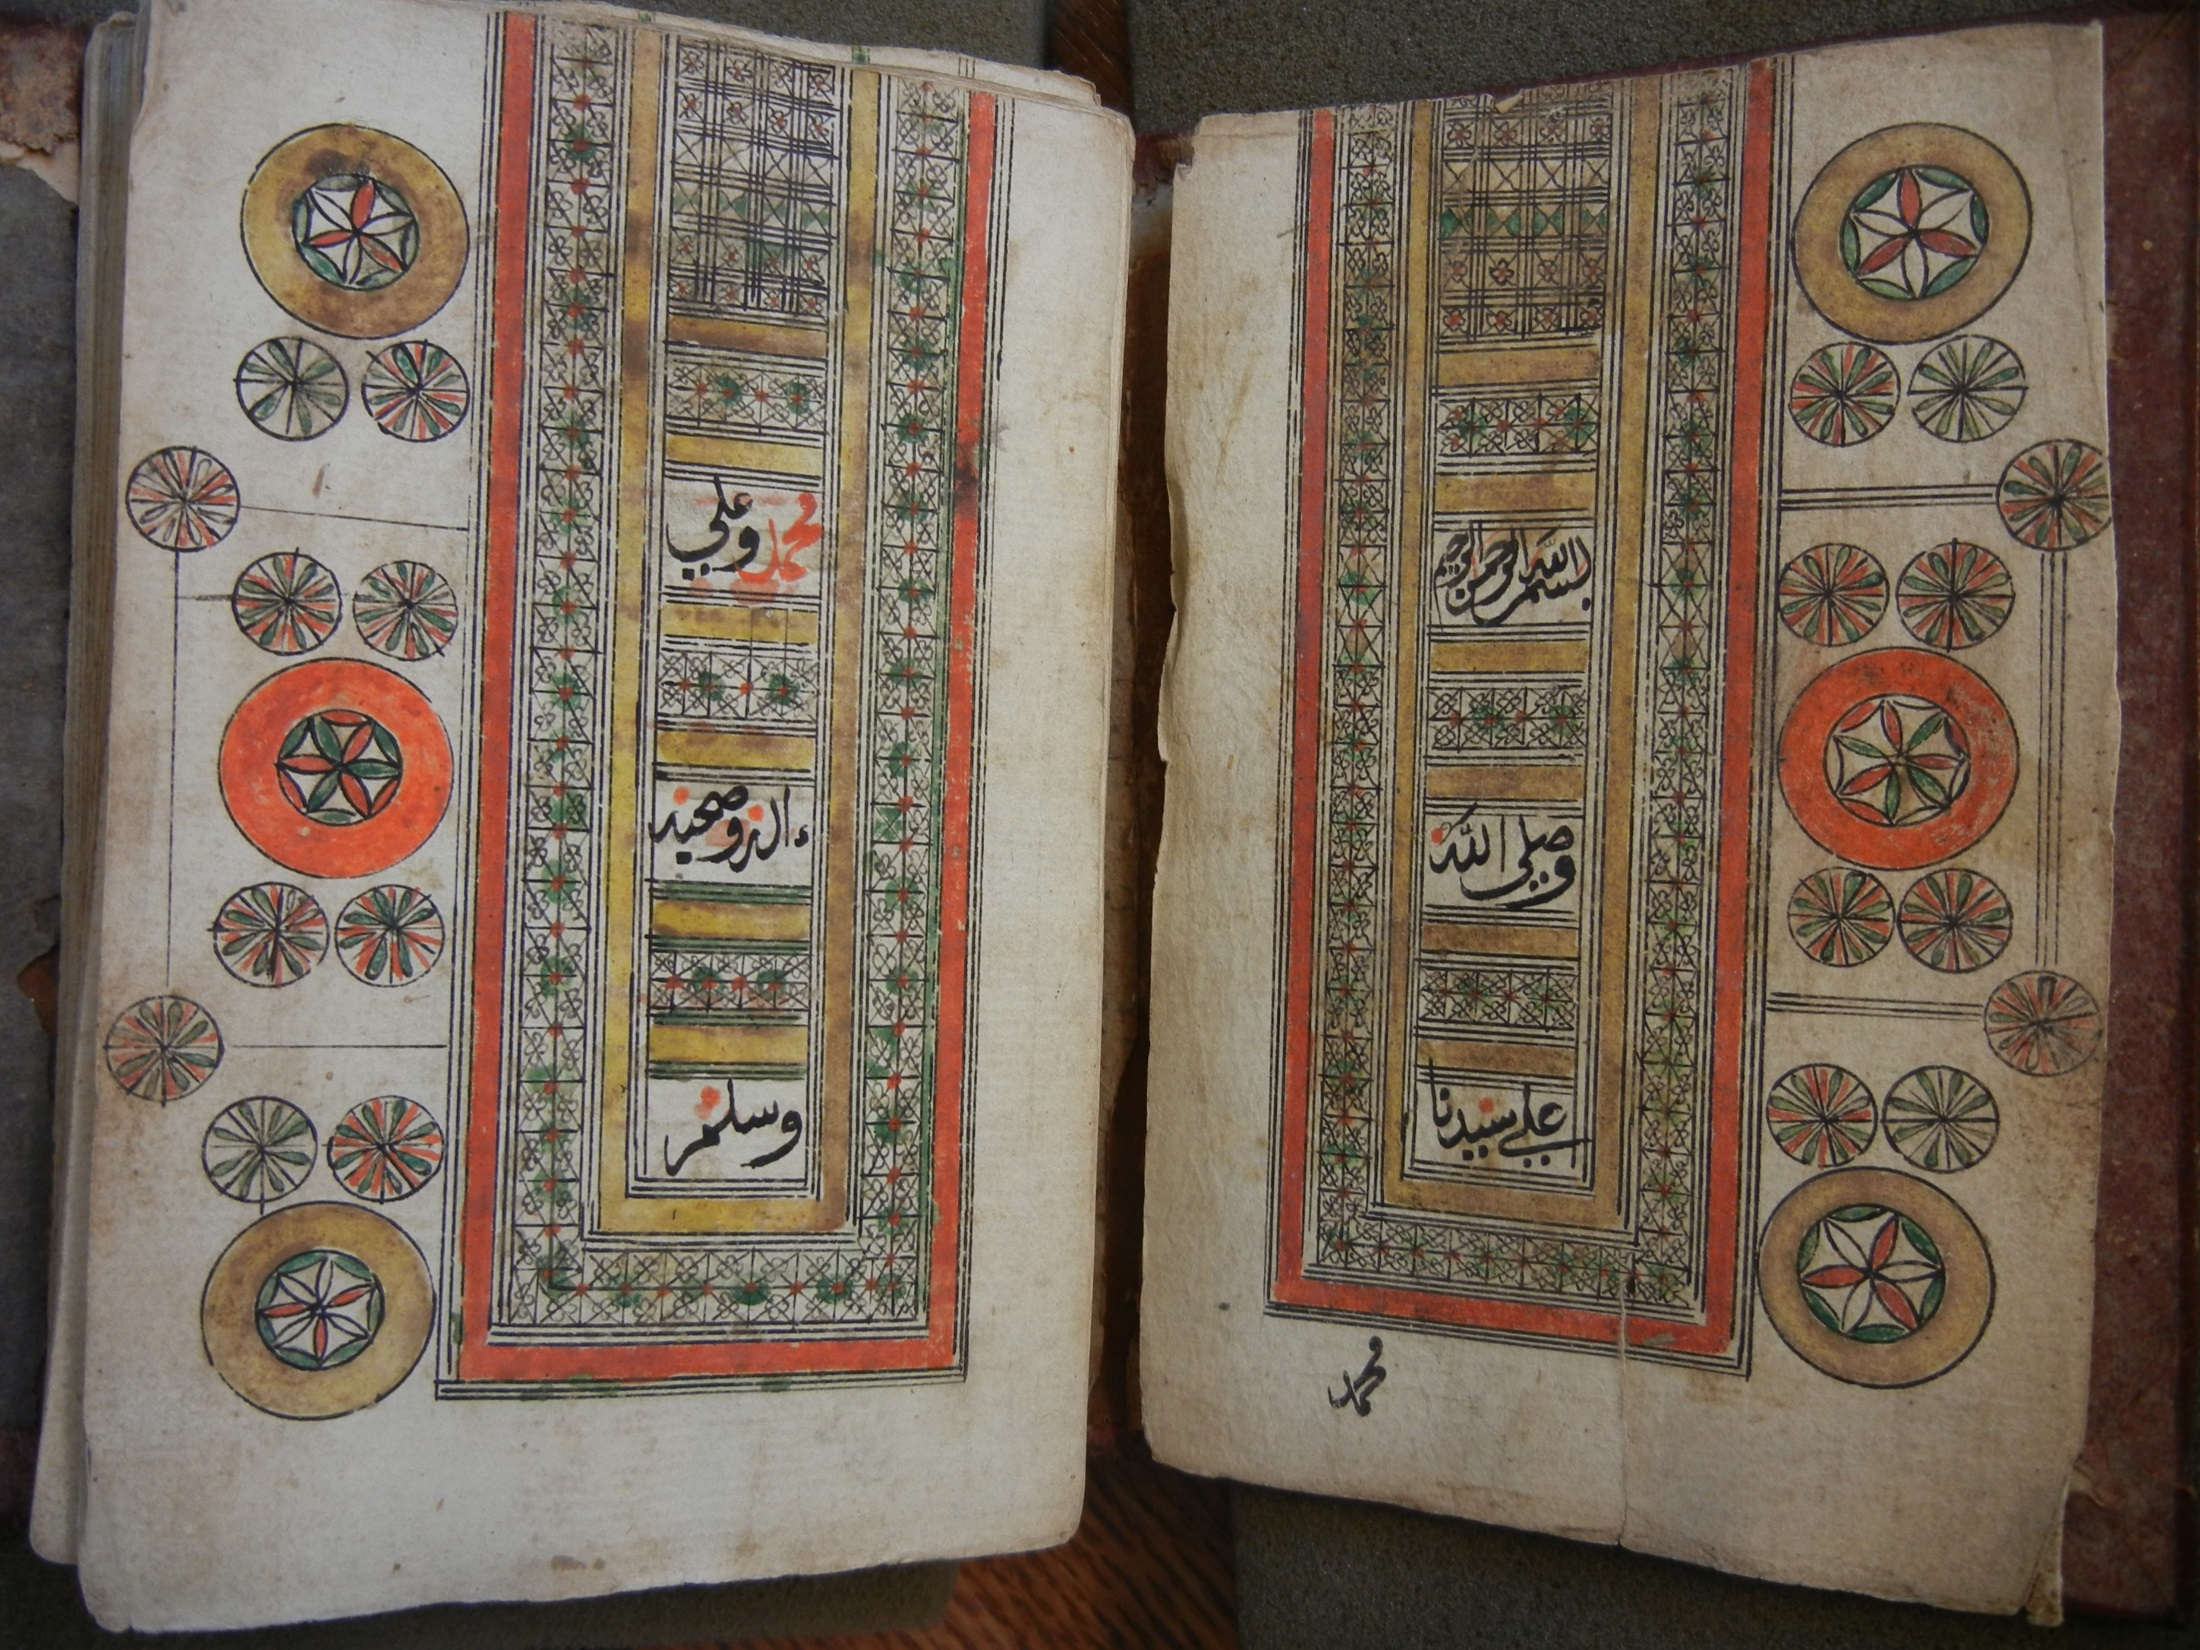 بسم الله الرحمن الرحيم
وصلي الله
علي سيدنا
محمد
محمد وعلي
ءاله وصحبه
وسلم